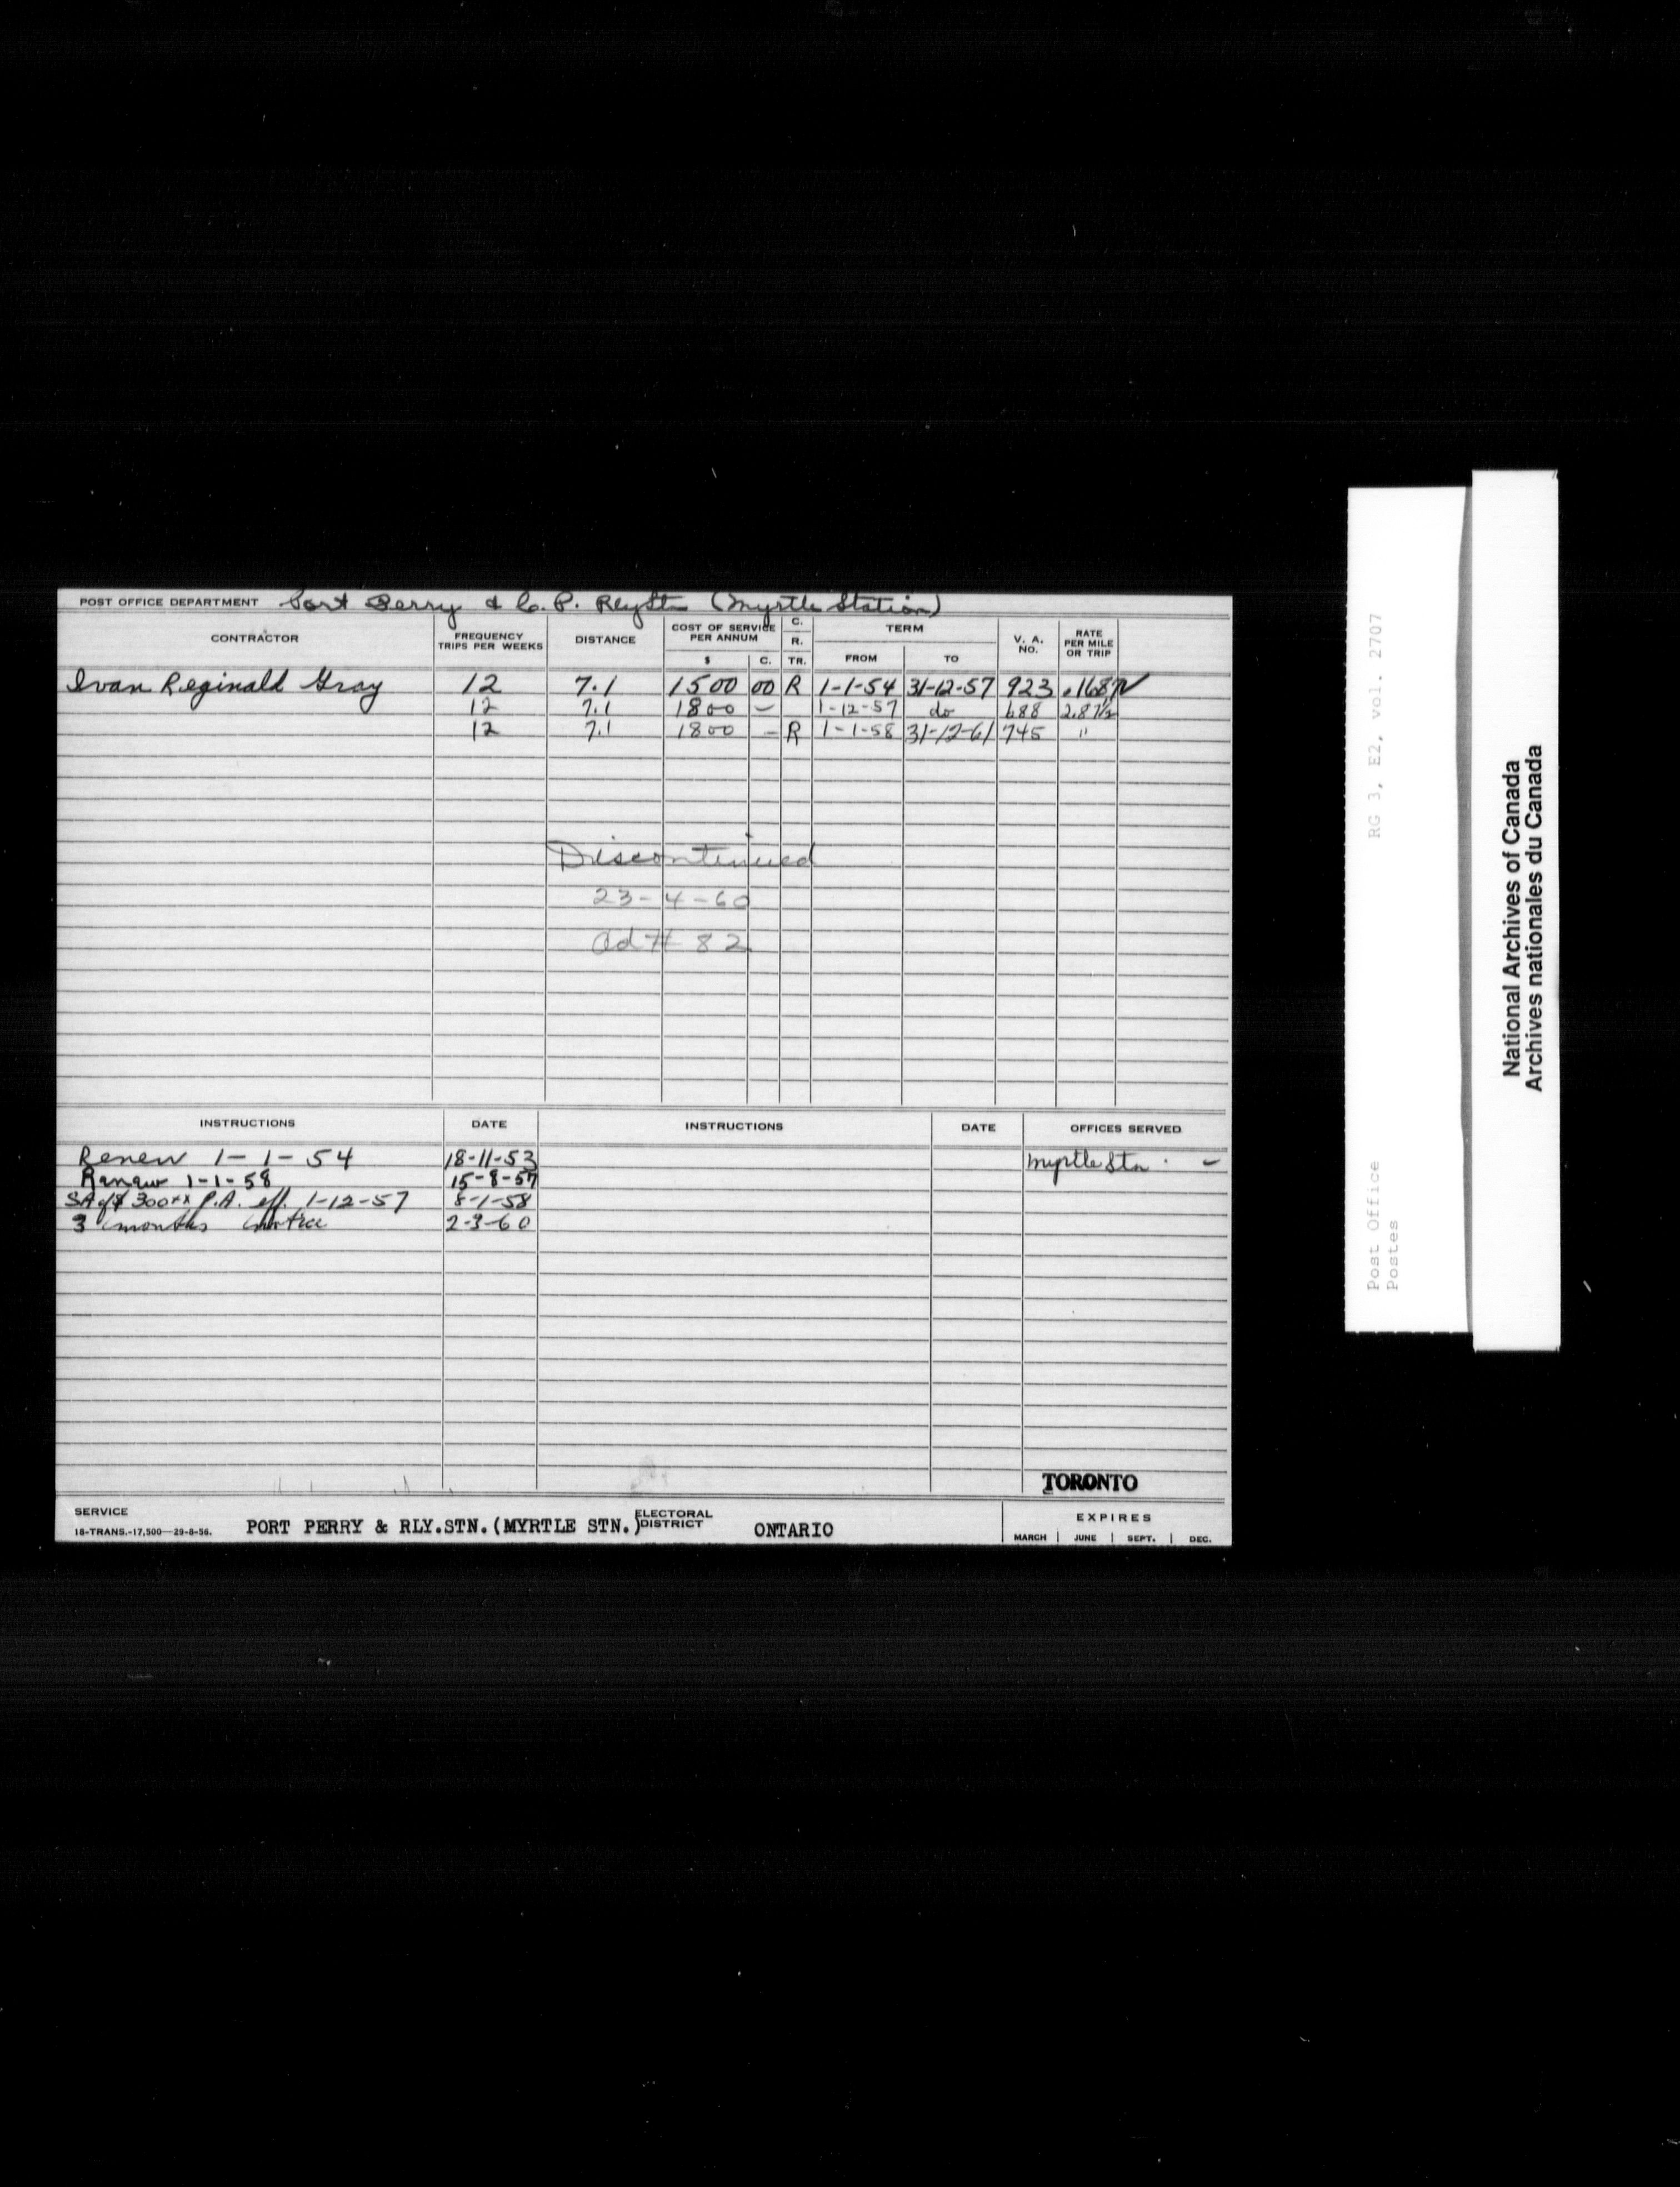 POST OFFICE DEPARTMENT Port Perry & C. P. Rly Stn (Myrtle Station)
CONTRACTOR FREQUENCY TRIPS PER WEEKS DISTANCE COST OF SERVICE PER ANNUM $ C. C. R. TR. TERM FROM TO V. A. NO. RATE PER MILE OR TRIP
Ivan Reginald Gray 12 7.1 1500 00 R 1-1-54 31-12-57 923 .1687
12 7.1 1800 – 1-12-57 do 688 2.87½
12 7.1 1800 – R 1-1-58 31-12-61 745 "
Discontinued
23-4-60
Ad # 82
INSTRUCTIONS DATE INSTRUCTIONS DATE OFFICES SERVED
Renew 1-1-54 18-11-53 Myrtle Stn. –
Renew 1-1-58 15-8-57
SA of $300xx P.A. eff. 1-12-57 8-1-58
3 months notice 2-3-60
TORONTO
SERVICE PORT PERRY & RLY.STN.(MYRTLE STN.) ELECTORAL DISTRICT ONTARIO EXPIRES
18-TRANS.-17,500—29-8-56. MARCH | JUNE | SEPT. | DEC.
Post Office RG 3, E2, vol. 2707
Postes
National Archives of Canada
Archives nationales du Canada